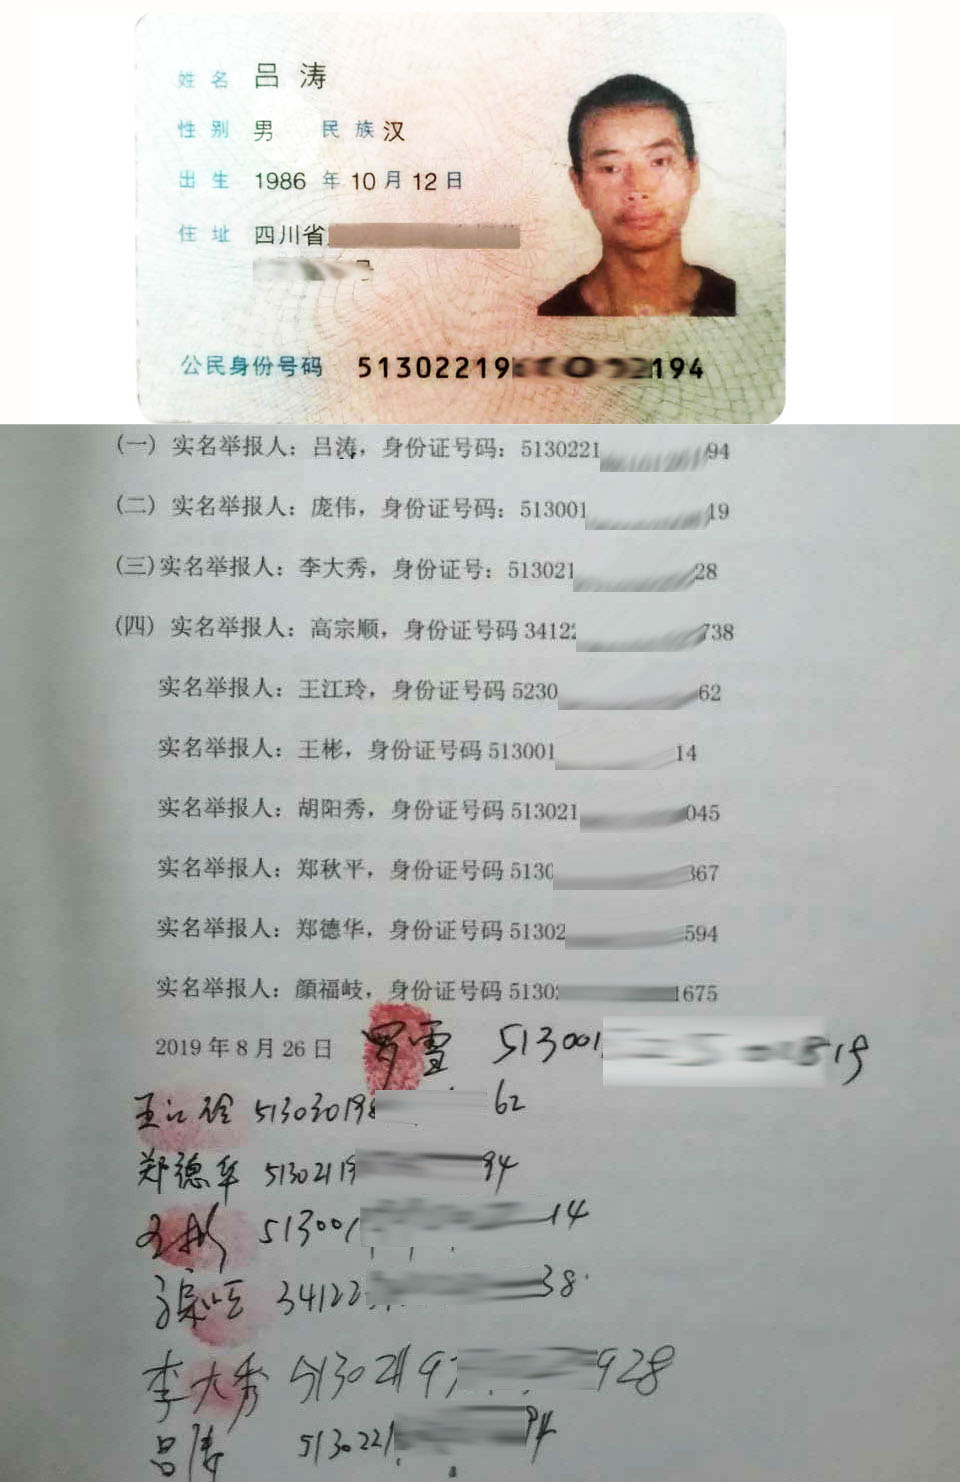 姓名 吕涛
性别 男 民族 汉
出生 1986 年 10 月 12 日
住址 四川省
号
公民身份号码 51302219 194
(一) 实名举报人：吕涛，身份证号码：5130221 94
(二) 实名举报人：庞伟，身份证号码：513001 19
(三)实名举报人：李大秀，身份证号：513021 28
(四) 实名举报人：高宗顺，身份证号码 34122 738
实名举报人：王江玲，身份证号码 5230 62
实名举报人：王彬，身份证号码 513001 14
实名举报人：胡阳秀，身份证号码 513021 045
实名举报人：郑秋平，身份证号码 5130 367
实名举报人：郑德华，身份证号码 51302 594
实名举报人：顏福岐，身份证号码 5130 1675
2019 年 8 月 26 日 罗雪 513001 19
王江玲 513030198 62
郑德华 51302119 94
王彬 513001 14
34122 38
李大秀 51302119 928
吕涛 5130221 94